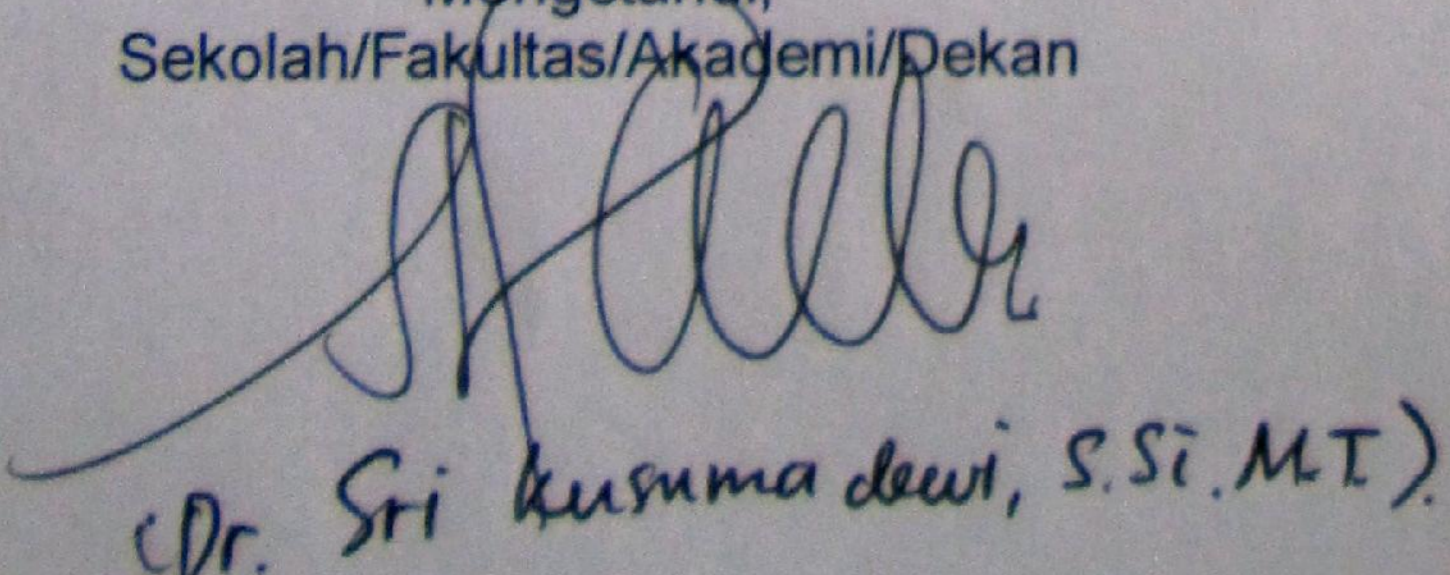 Mengetahui,
Sekolah/Fakultas/Akademi/Dekan
(Dr. Sri kusuma dewi, S.Si. M.T.).